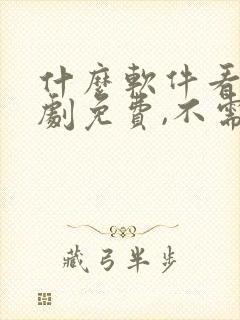 什麼軟件看
劇免費,不需
藏弓半步